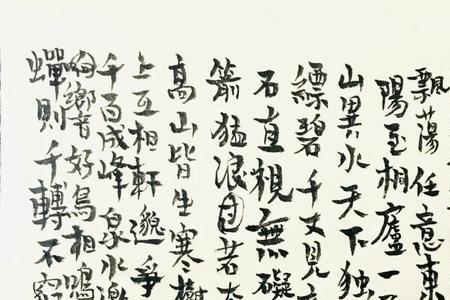 飄蕩任意東
陽至桐廬一
山異水天下獨
縹碧千丈見
石直視無礙
箭猛浪若
高山皆生寒樹
上互相軒邈爭
千百成峰泉水激
響好鳥相鳴
蟬則千轉不窮